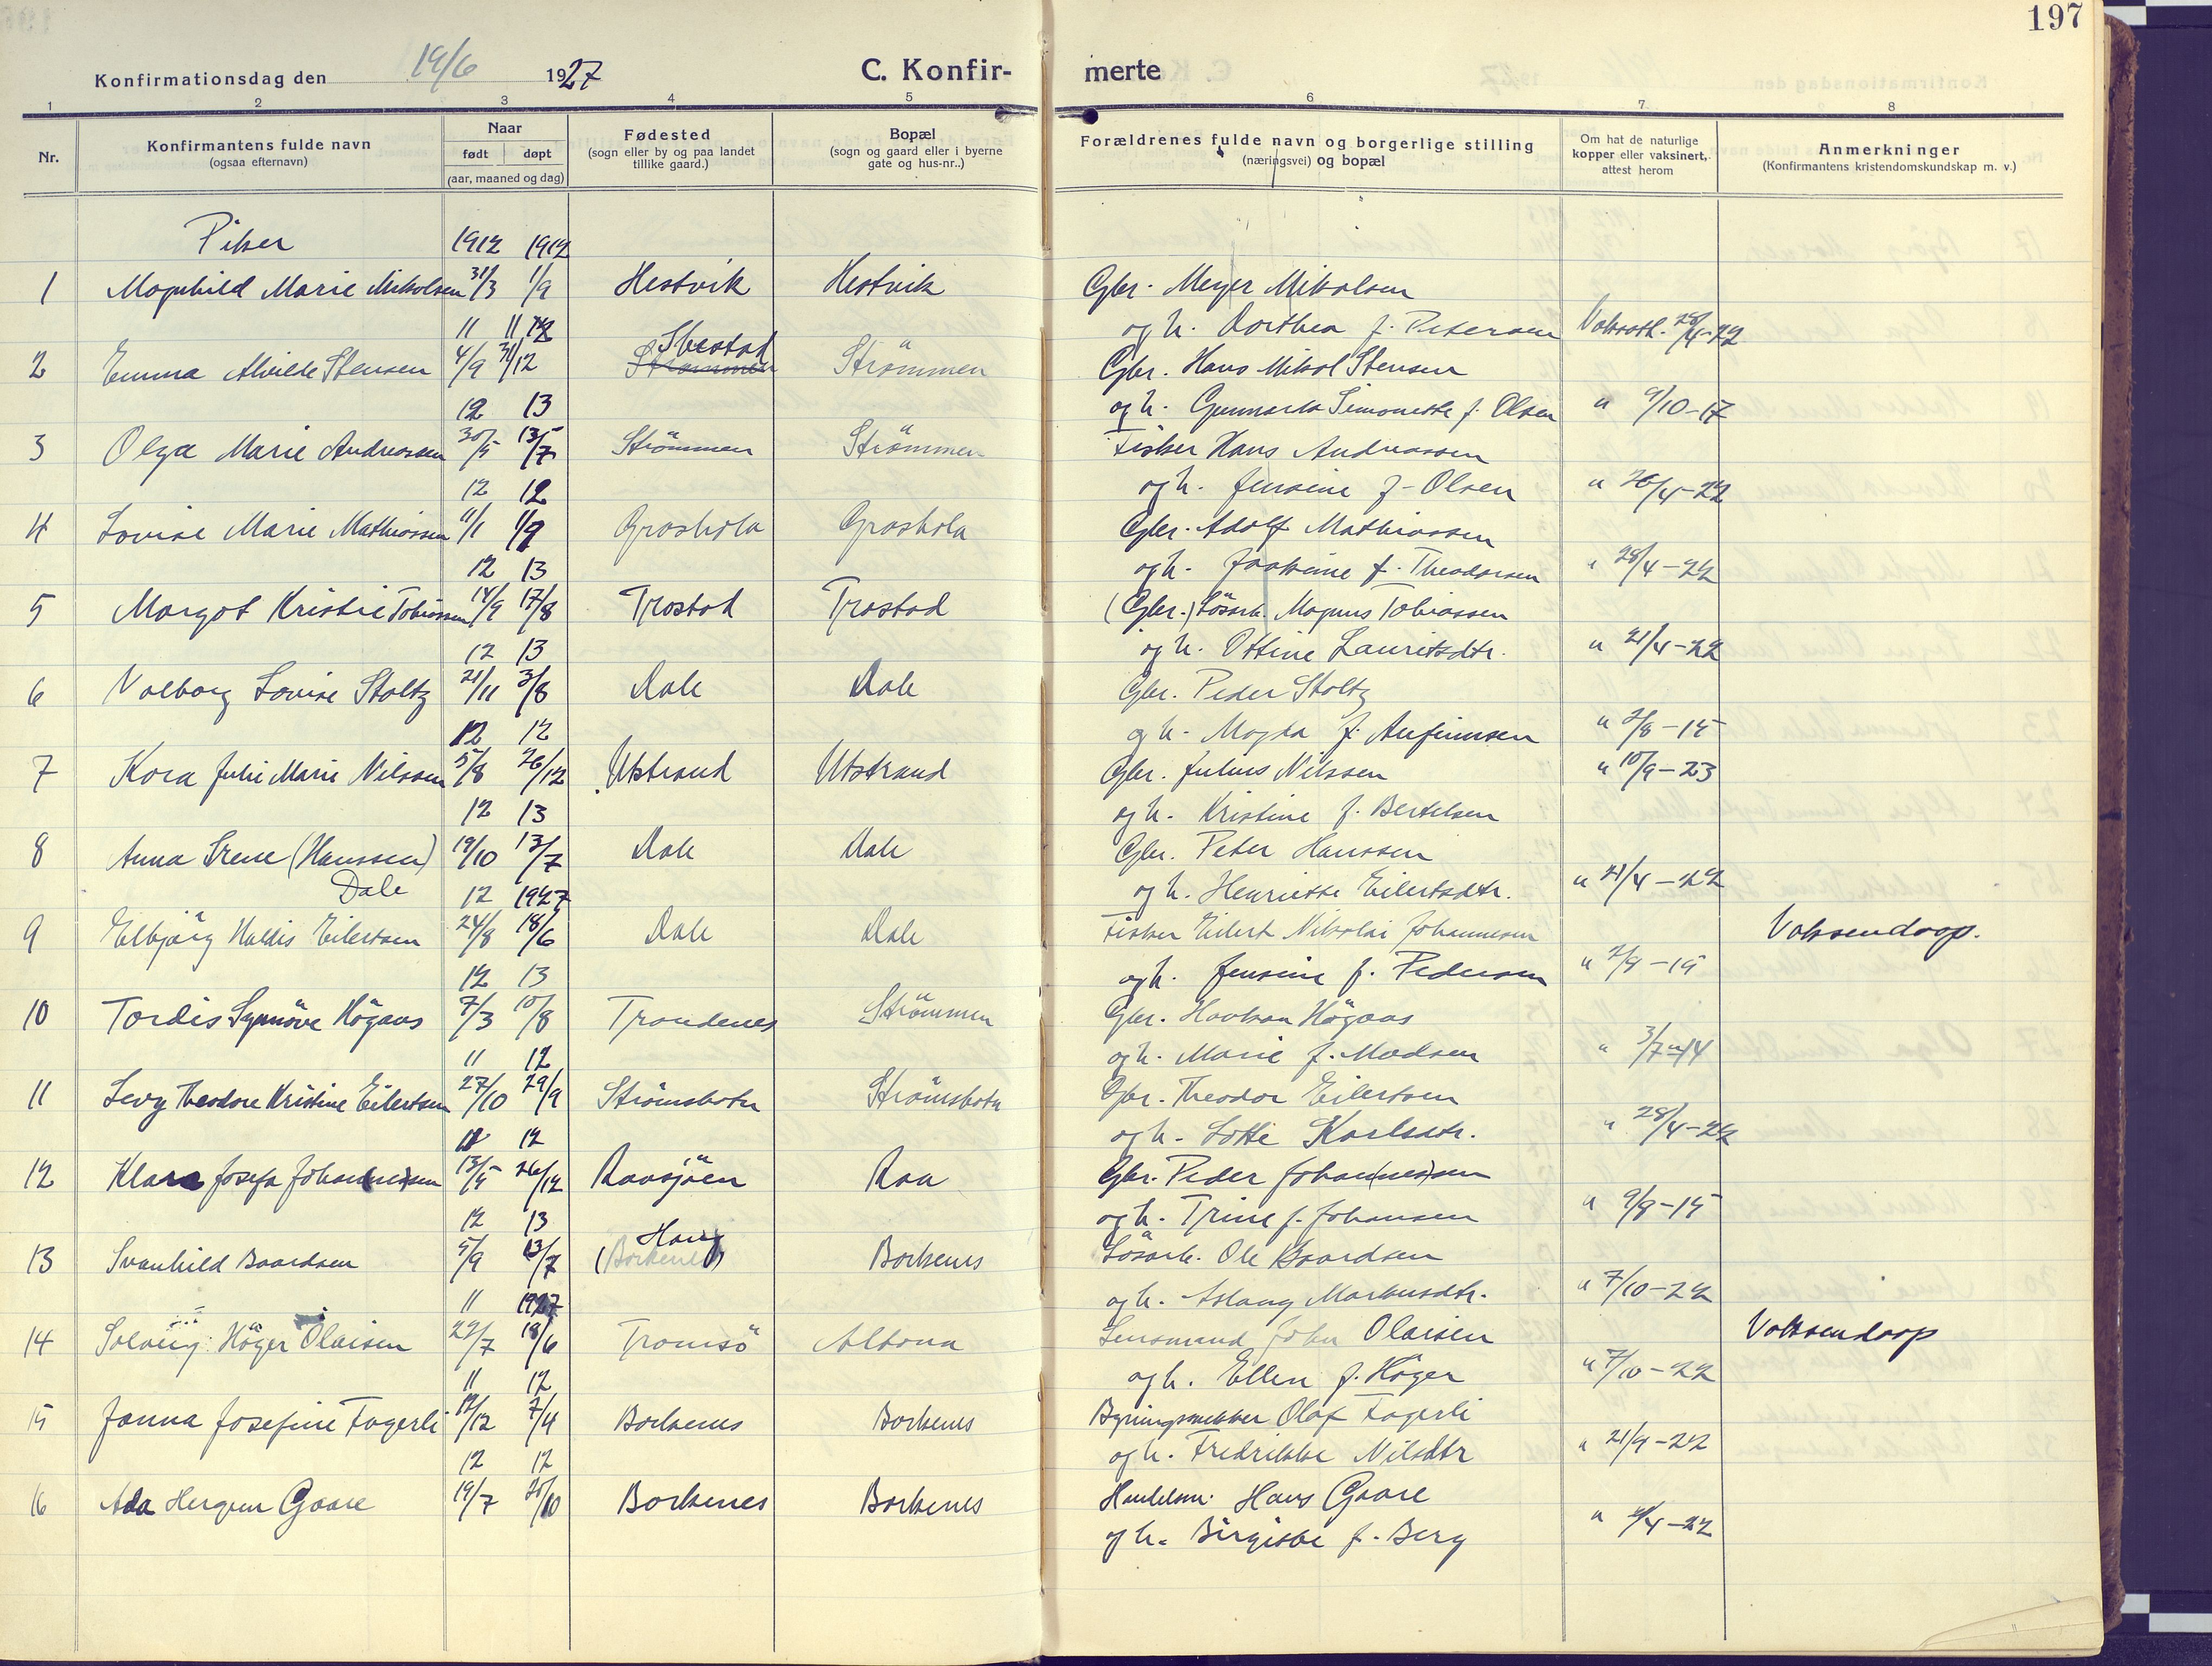 197
Konfirmationsdag den 19/6 1927 C. Konfirmerte
1 2 3 4 5 6 7 8
Nr. Konfirmantens fulde navn (ogsaa efternavn) Naar født døpt (aar, maaned og dag) Fødested (sogn eller by og paa landet tillike gaard.) Bopæl (sogn og gaard eller i byerne gate og hus-nr..) Forældrenes fulde navn og borgerlige stilling (næringsvei) og bopæl Om hat de naturlige kopper eller vaksinert, attest herom Anmerkninger (Konfirmantens kristendomskundskap m. v.)
Piker 1912 1912
1 Magnhild Marie Mikalsen 31/3 1/9 Hestvik Hestvik Gbr. Meyer Mikalsen
og h. Dorthea f. Petersen Vaksatt. 28/4-22
11 11 12
2 Emma Alvilde Stensen 4/9 31/12 Ibestad Strømmen Strömmen Gbr. Hans Mikal Stensen
og h. Gunmarta Simonette f. Olsen " 9/10-17
12 13
3 Olga Marie Andreassen 30/5 13/7 Strömmen Strömmen Fisker Hans Andreassen
og h. Jensine f. Olsen " 26/4-22
12 12
4 Lovise Marie Mathiassen 11/1 1/9 Grashola Grashola Gbr. Adolf Mathiassen
og h. Joakime f. Theodorsen " 28/4-22
12 13
5 Margot Kristie Tobiassen 14/9 17/8 Trastad Trastad (Gbr.) Lösarb. Magnus Tobiassen
og h. Ottine Lauritsdtr. " 21/4-22
12 13
6 Valborg Lovise Stoltz 21/11 3/8 Dale Dale Gbr. Peder Stoltz
og h. Magda f. Anfinnsen " 2/8-15
12 12
7 Kora Julie Marie Nilssen 5/8 26/12 Utstrand Utstrand Gbr. Julius Nilssen " 10/9-23
og h. Kristine f. Bertelsen
12 13
8 Anna Irene (Hanssen) 19/10 13/7 Dale Dale Gbr. Peter Hanssen
Dale og h. Henriette Eilertsdtr. " 21/4-22
12 1927
9 Elbjörg Haldis Eilertsen 24/8 18/6 Dale Dale Fisker Eilert Nikolai Johannesen Voksendaap.
og h. Jensine f. Pedersen " 2/9-15
12 13
10 Tordis Synnöve Högaas 7/3 10/8 Trondenes Strömmen Gbr. Haakan Högaas
og h. Marie f. Madsen " 3/7-14
11 12
11 Levy Theodore Kristine Eilertsen 27/10 29/9 Strömsbotn Strömsbotn Gbr. Theodor Eilertsen
og h. Lotte Karlsdtr. " 28/4-22
11 12
12 Klara Josefa Johan(ne)sen 13/5 26/12 Raasjöen Raa Gbr. Peder Johan(nes)sen
og h. Trine f. Johansen " 9/8-15
12 13
13 Svanhild Baardsen 5/9 13/7 Haug (Borkenes) Borkenes Lösarb. Ole Baardsen
og h. Aslaug Markusdtr. " 7/10-22
11 1927
14 Solveig Höger Olaisen 22/7 18/6 Tromsö Altona Lensmand John Olaisen Voksendaap
og h. Ellen f. Höger " 7/10-22
11 12
15 Janna Josefine Fagerli 12/12 7/4 Borkenes Borkenes Bygningssnekker Olaf Fagerli
og h. Fredrikke Nilsdtr " 21/9-22
12 12
16 Ada Hergun Gaare 19/7 20/10 Borkenes Borkenes Handelsm. Hans Gaare
og h. Birgitte f. Berg